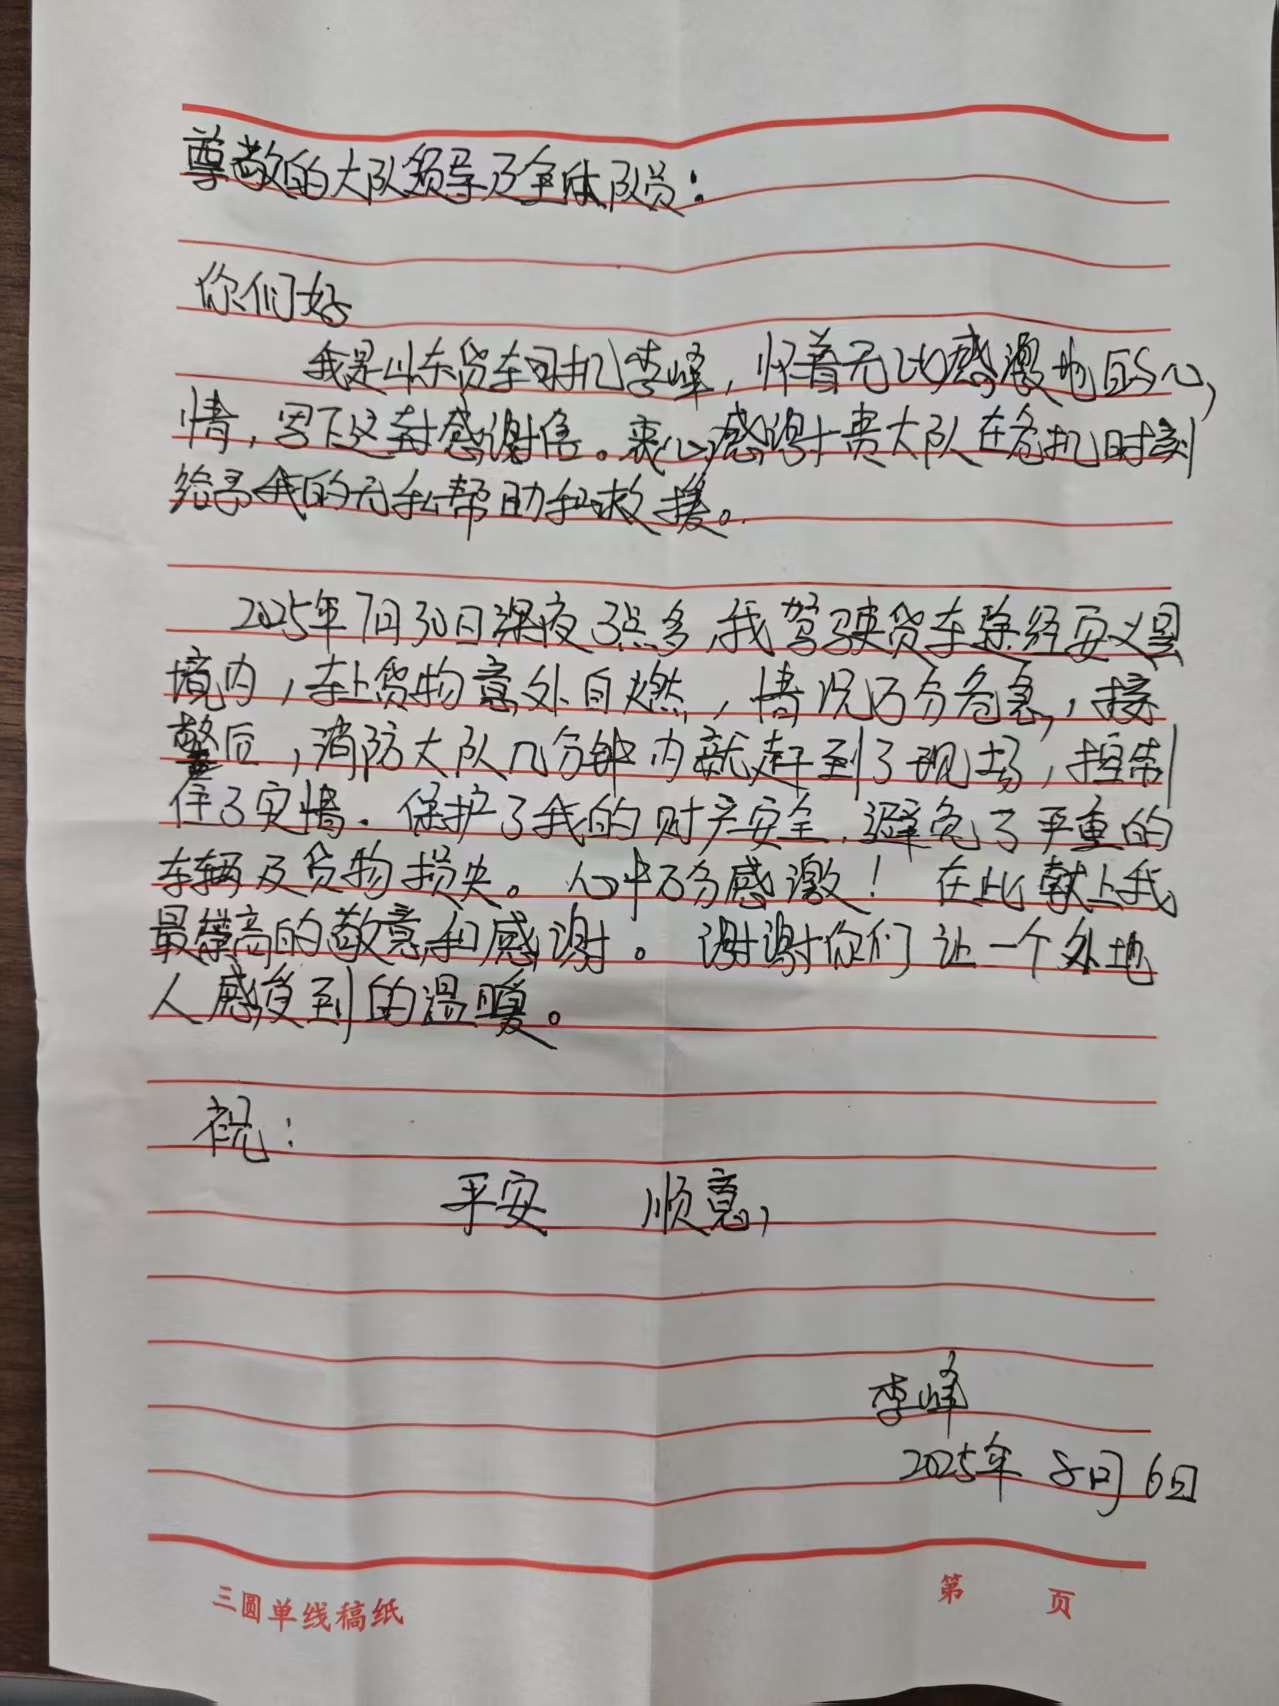 尊敬的大队领导及全体队员：
你们好
我是山东货车司机李峰，怀着无比感激地的心
情，写下这封感谢信。衷心感谢贵大队在危机时刻
给予我的无私帮助和救援。
2025年7月30日深夜3点多，我驾驶货车途经安义县
境内，车上货物意外自燃，情况万分危急，接
警后，消防大队几分钟内就赶到了现场，控制
住了灾情。保护了我的财产安全，避免了严重的
车辆及货物损失。心中万分感激！在此献上我
最崇高的敬意和感谢。谢谢你们让一个外地
人感受到的温暖。
祝：
平安 顺意，
李峰
2025年 8月 6日
三圆单线稿纸 第 页